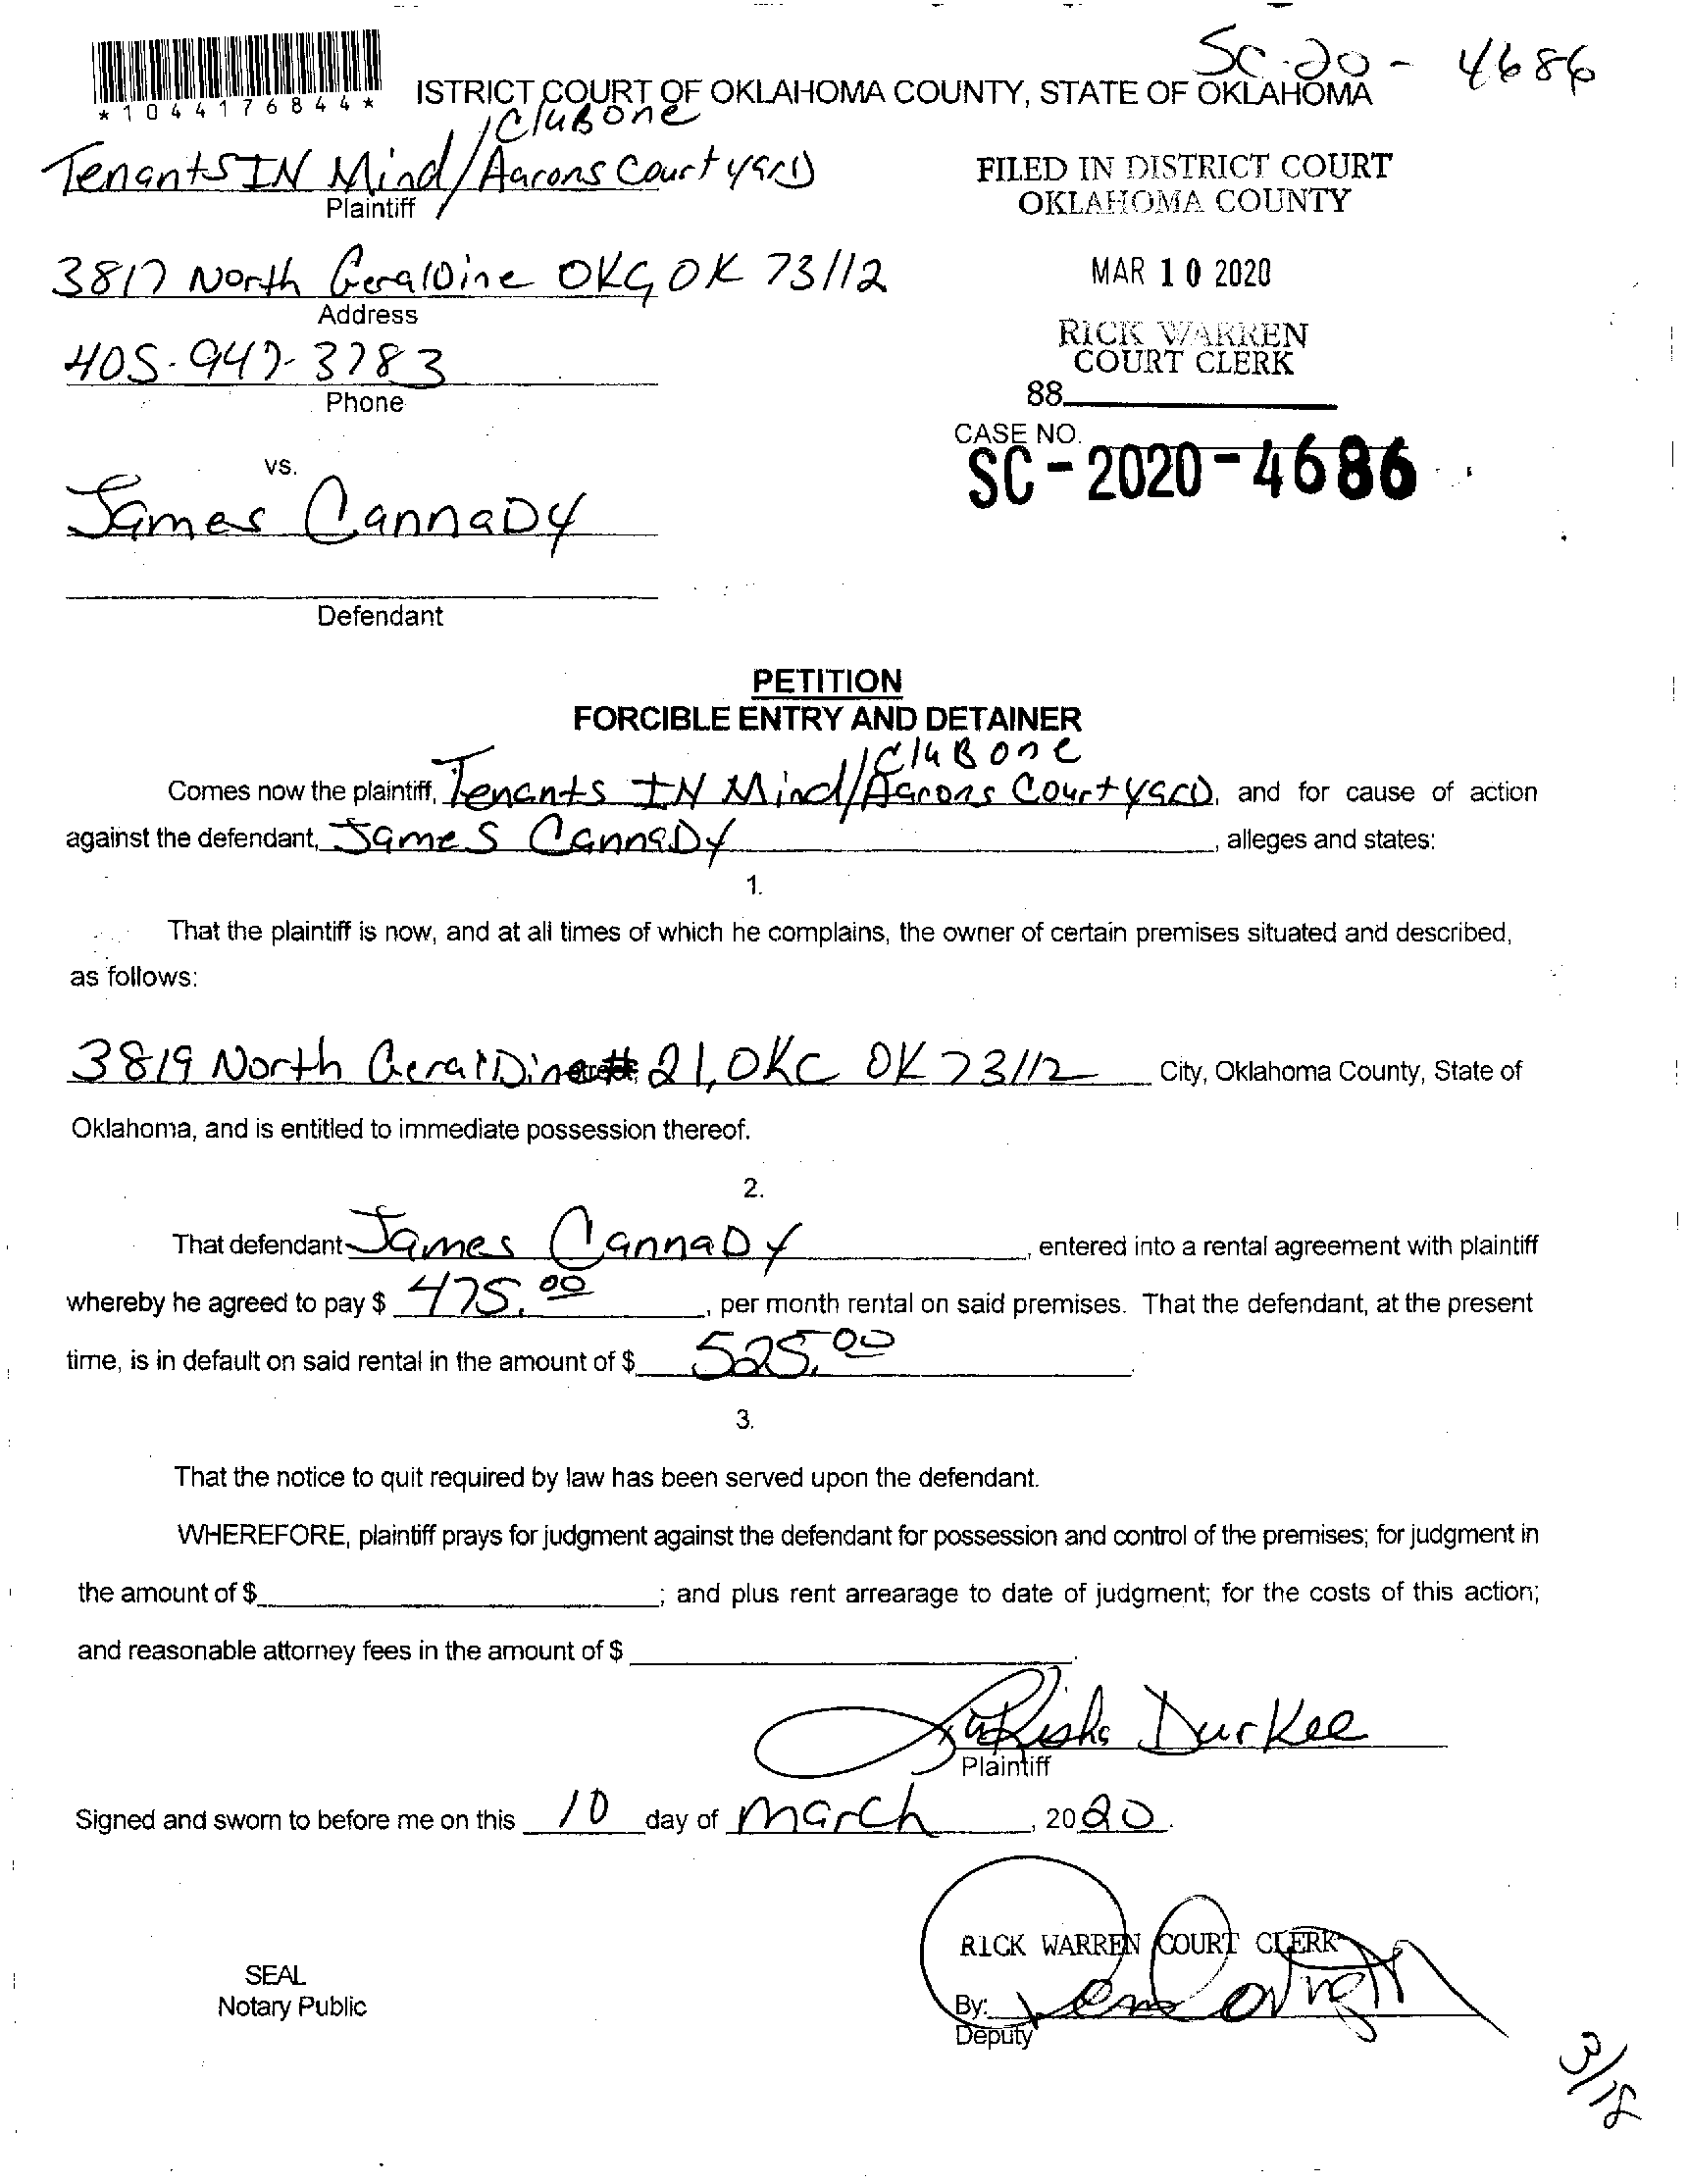 SC-20- 4686
*1044176844*
ISTRICT COURT OF OKLAHOMA COUNTY, STATE OF OKLAHOMA
/CluB One
Tenants IN Mind/Aarons CourtyarD
Plaintiff
FILED IN DISTRICT COURT
OKLAHOMA COUNTY
3817 North GeralDine OKC, OK 73112
Address
MAR 10 2020
405-947-3783
Phone
RICK WARREN
COURT CLERK
88
CASE NO.
SC-2020-4686
vs.
James CannaDy
Defendant
PETITION
FORCIBLE ENTRY AND DETAINER
/CluB One
Comes now the plaintiff, Tenants IN Mind/Aarons CourtyarD, and for cause of action
against the defendant, James CannaDy, alleges and states:
1.
That the plaintiff is now, and at all times of which he complains, the owner of certain premises situated and described,
as follows:
3819 North GeralDine # 21, OKC OK 73112 City, Oklahoma County, State of
Oklahoma, and is entitled to immediate possession thereof.
2.
That defendant James CannaDy, entered into a rental agreement with plaintiff
whereby he agreed to pay $ 475.00, per month rental on said premises. That the defendant, at the present
time, is in default on said rental in the amount of $ 525.00.
3.
That the notice to quit required by law has been served upon the defendant.
WHEREFORE, plaintiff prays for judgment against the defendant for possession and control of the premises; for judgment in
the amount of $ ; and plus rent arrearage to date of judgment; for the costs of this action;
and reasonable attorney fees in the amount of $ .
Durkee
Plaintiff
Signed and sworn to before me on this 10 day of March, 2020.
RICK WARREN COURT CLERK
SEAL
Notary Public
By:
Deputy